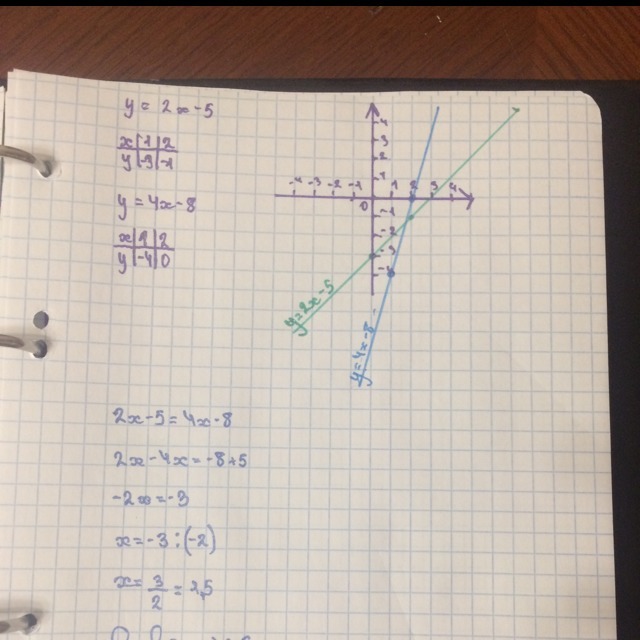 y = 2x-5
x 1 2
y -3 -1
y = 4x-8
x 1 2
y -4 0
4
3
2
1
-4 -3 -2 -1 1 2 3 4
0
-1
-2
y=2x-5
y=4x-8
2x-5=4x-8
2x-4x=-8+5
-2x=-3
x=-3:(-2)
x= 3/2 = 2,5